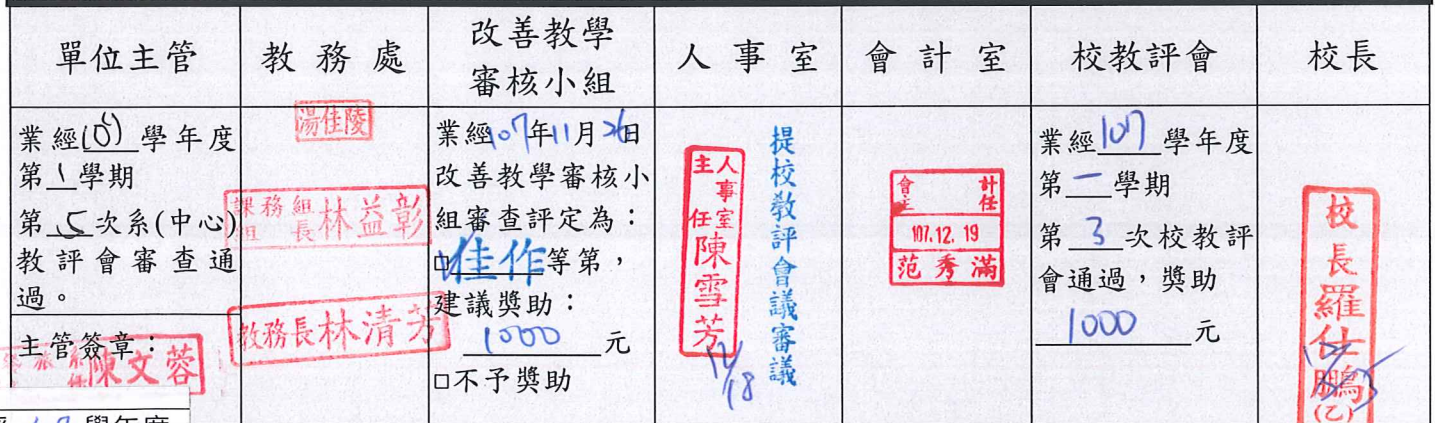 單位主管
教務處
改善教學
審核小組
人事室
會計室
校教評會
校長
業經107學年度
第1學期
第5次系(中心)
教評會審查通
過。
主管簽章：
陳文蓉
湯佳陵
課務組
組長林益彰
教務長林清芳
業經107年11月26日
改善教學審核小
組審查評定為：
□佳作等第，
建議獎助：
1000元
□不予獎助
人事室
主任陳雪芳
12/18
提校教評會議審議
會計
主任
107.12.19
范秀滿
業經107學年度
第一學期
第3次校教評
會通過，獎助
1000元
校長羅仕鵬
(乙)
學年度